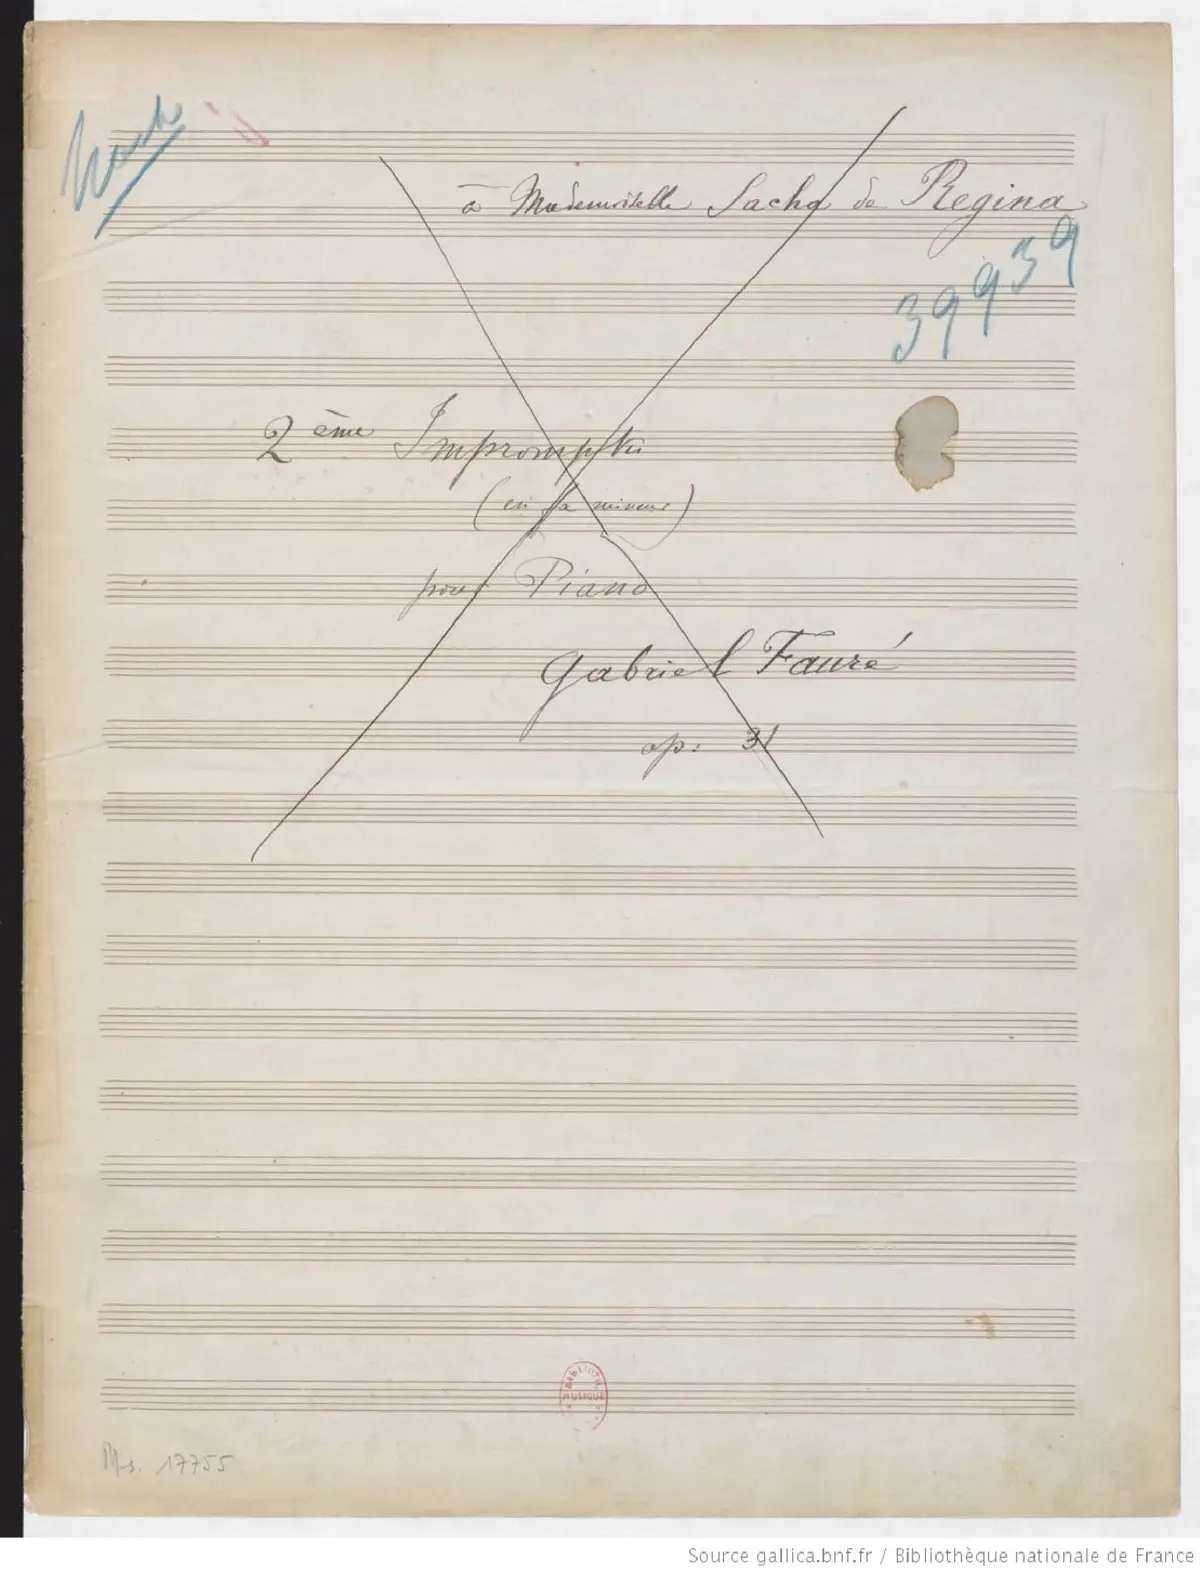 à Mademoiselle Sacha de Regina
39939
2ème Impromptu
(en fa mineur)
pour Piano
Gabriel Fauré
op: 31
BIBLIOTH.
MUSIQUE
Ms. 17755
Source gallica.bnf.fr / Bibliothèque nationale de France